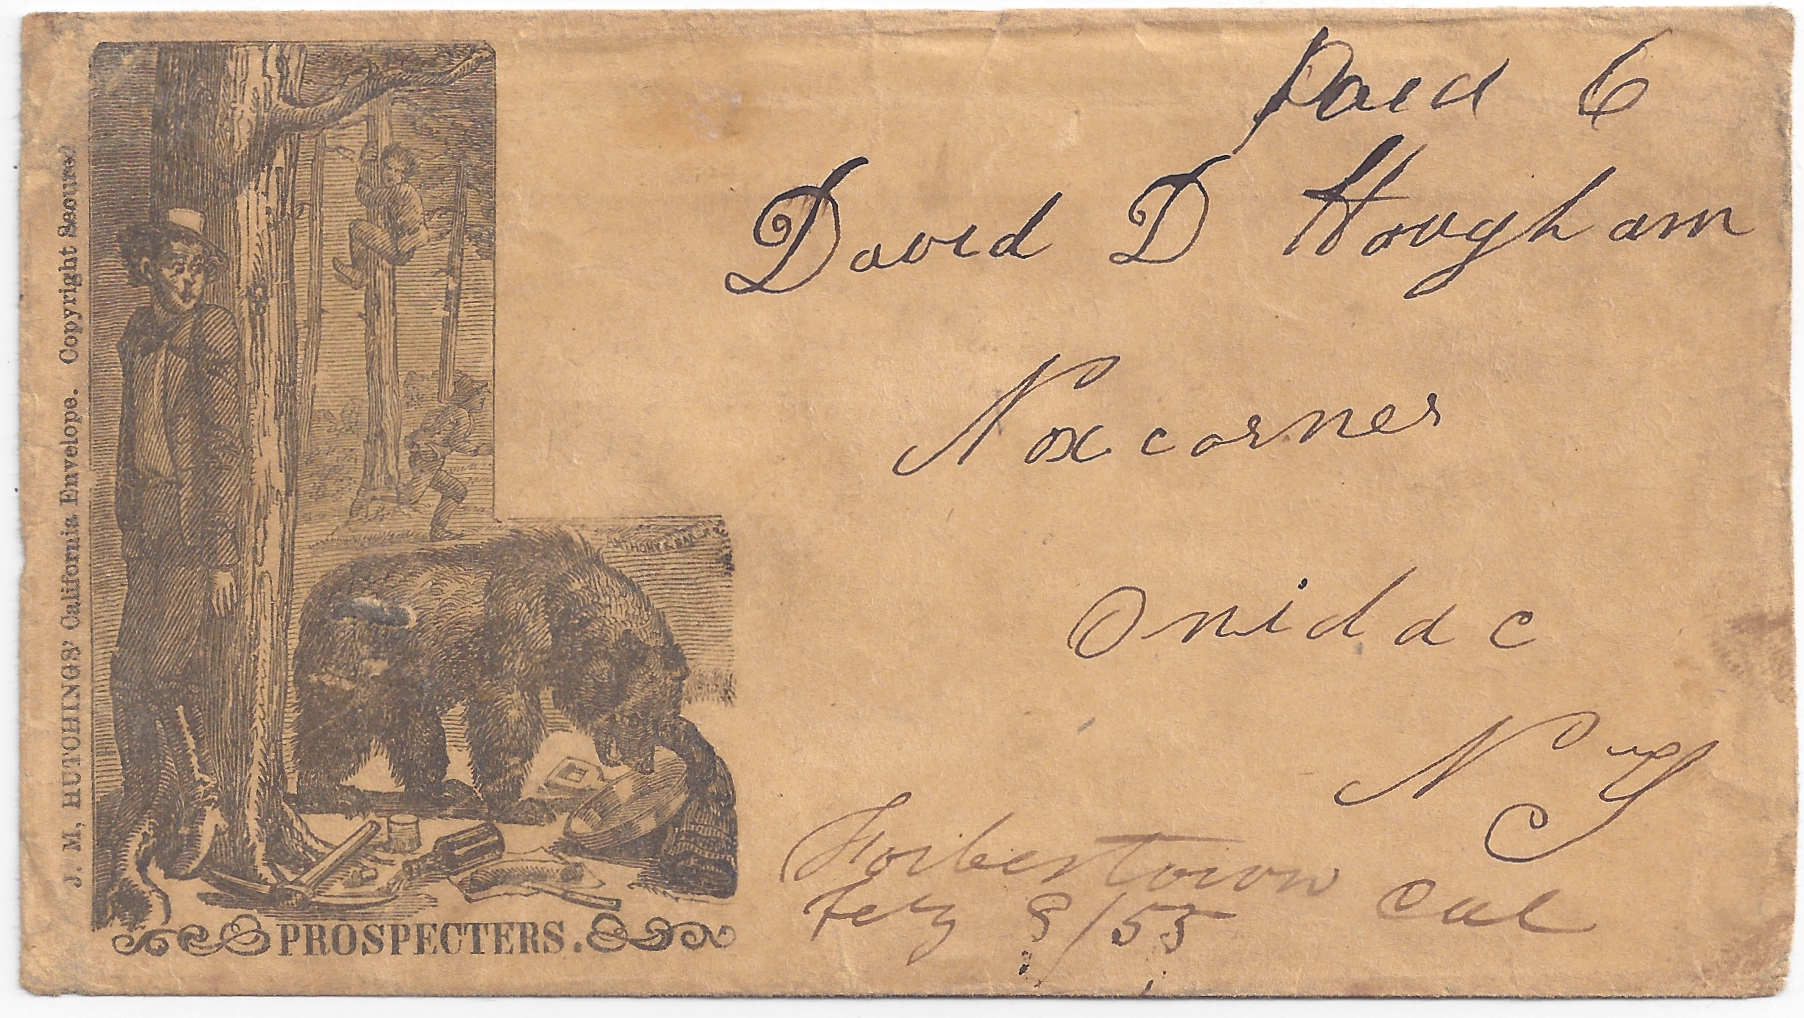 J. M. HUTCHINGS' California Envelope. Copyright Secured
PROSPECTERS.
Paid 6
David D Hougham
Nox corner
Onida c
N Y
Forbestown Cal
Feby 8/55